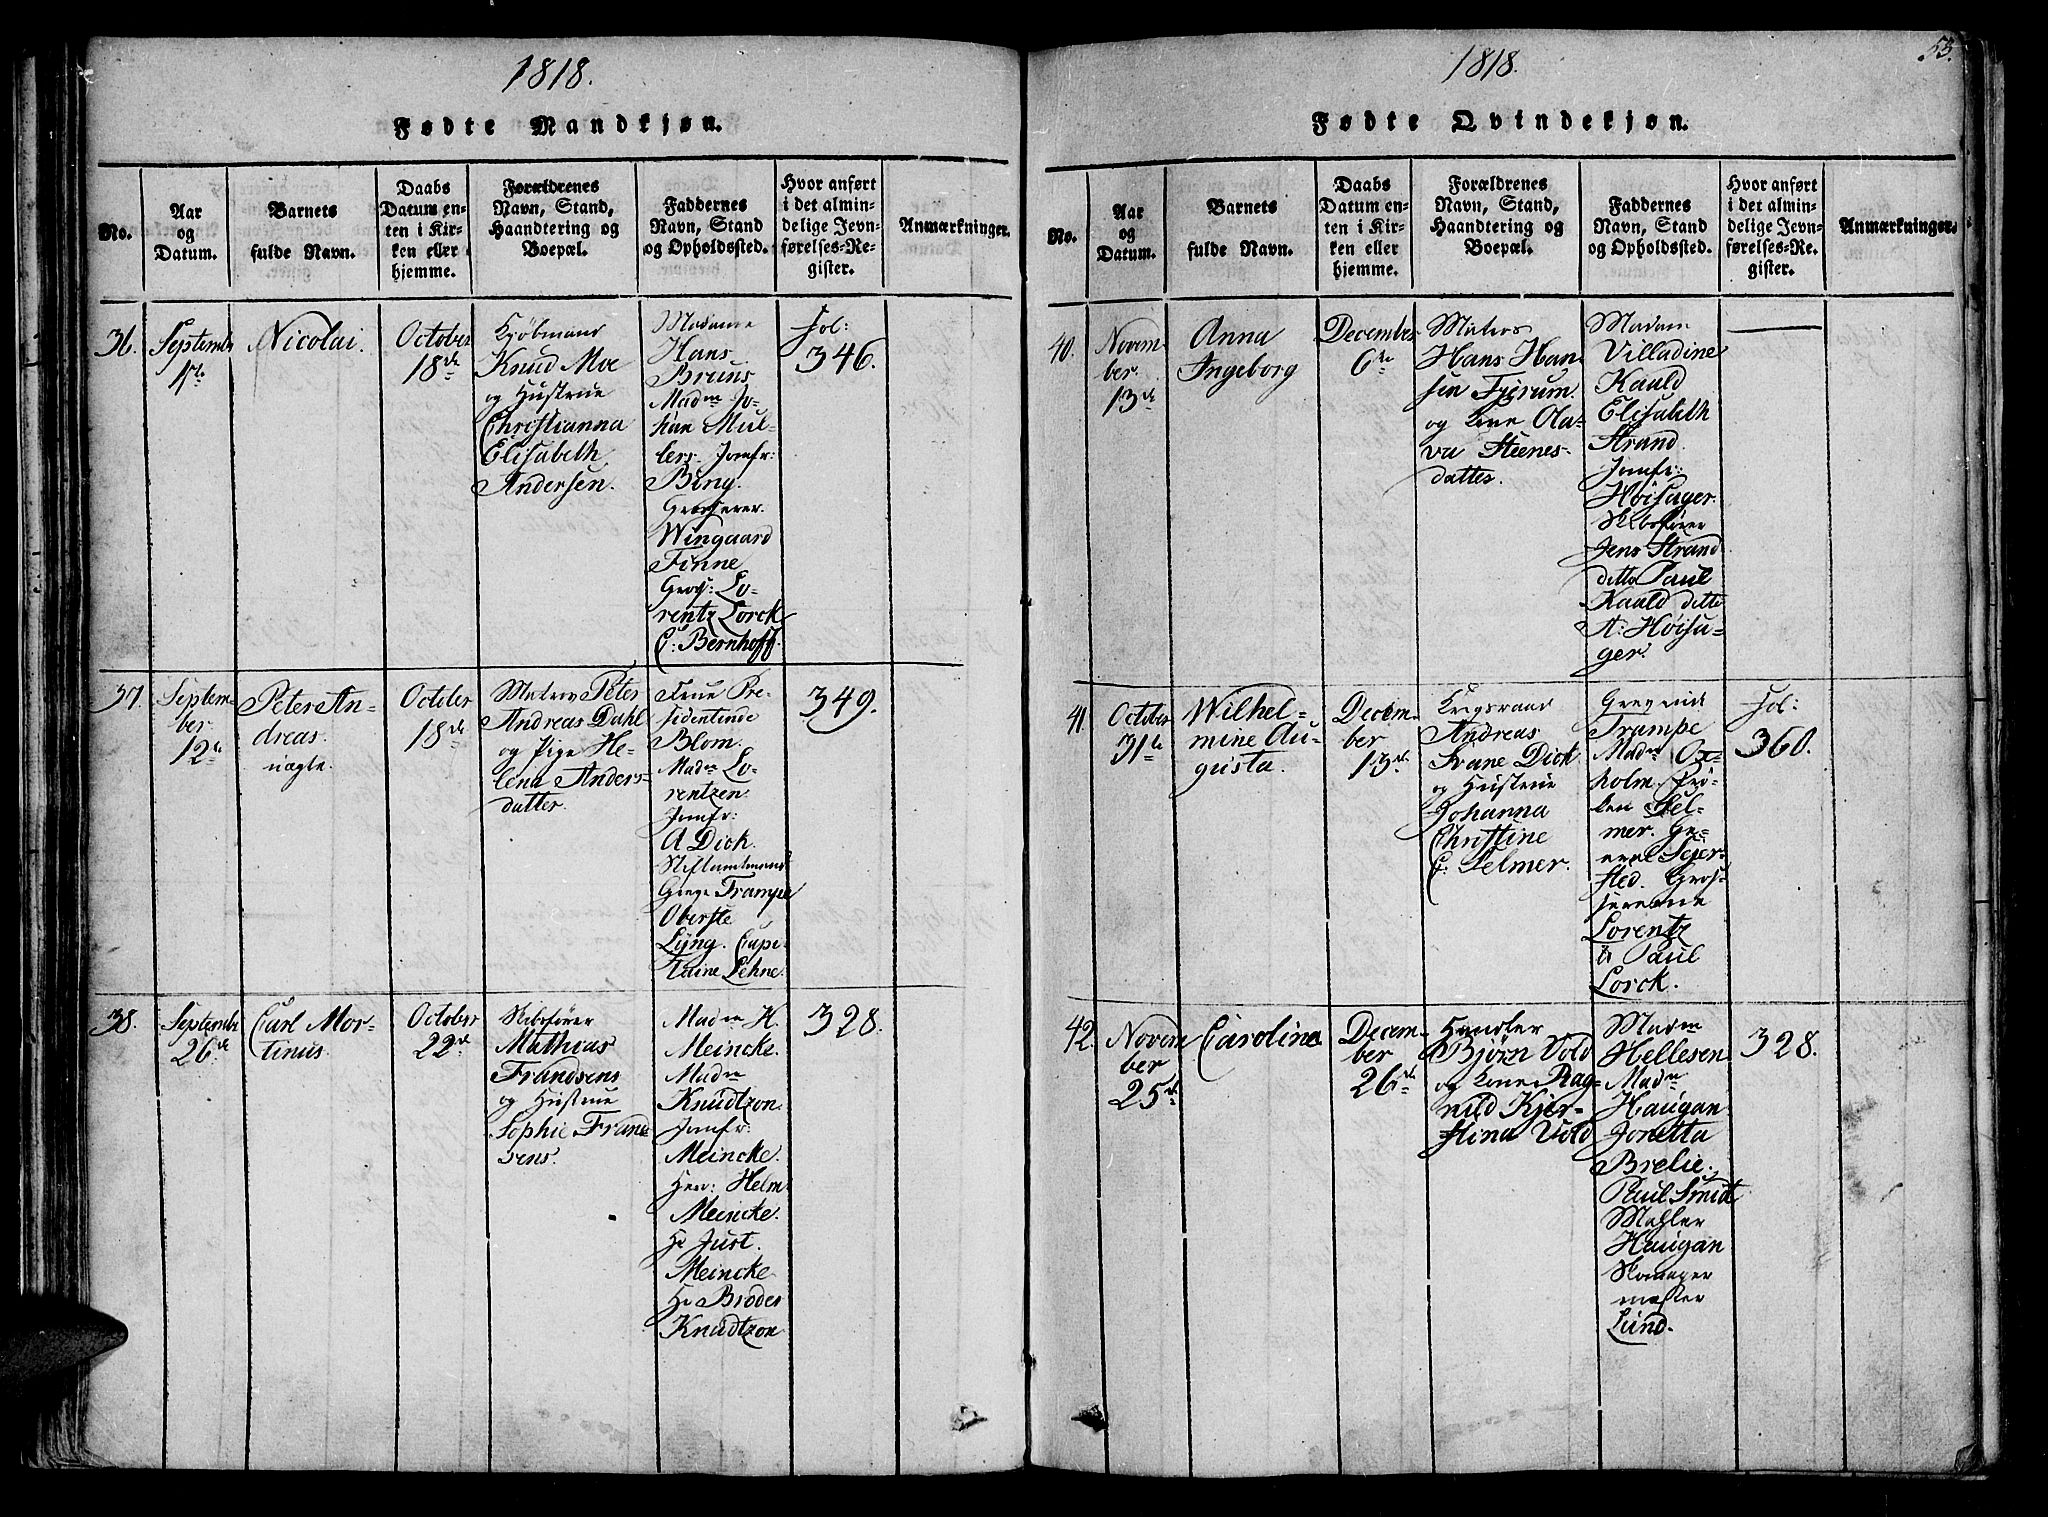 1818.
Fødte Mandkjøn.
No.
Aar
og
Datum.
Barnets
fulde Navn.
Daabs
Datum en-
ten i Kir-
ken eller
hjemme.
Forældrenes
Navn, Stand,
Haandtering og
Boepæl.
Faddernes
Navn, Stand
og Opholdssted.
Hvor anført
i det almin-
delige Jevn-
førelses-Re-
gister.
Anmærkninger.
36.
Septembr
1ste
Nicolai.
October
18de
Kjøbmand
Knud Moe
og Hustrue
Christianna
Elisabeth
Andersen.
Madame
Hans
Bruns
Madm Jo-
han Mül-
lers. Jomfr:
Bing.
Grosserer.
Wingaard
Finne
Gros: Lo-
rentz Lorck
C: Bernhoff.
Fol:
346.
37.
Septem-
ber
12te
Peter An-
dreas.
uægte.
October
18de
Matros Peter
Andreas Dahl
og Pige He-
lena Anders-
datter.
Frue Pre-
sidentinde
Blom.
Madm Lo-
rentzen.
Jomfr:
A Dick.
Stiftamtmand
Greve Trampe
Oberste
Lÿng. Capi-
taine Lehne.
349.
38.
Septembr
26de
Carl Mor-
tinus.
October
22de
Skibsfører
Mathias
Frandsens
og Hustrue
Sophie Frand
sens.
Madm H.
Meincke.
Madm
Knudtzon.
Jomfr:
Meincke.
Herr: Helm.
Meincke.
Hr Just.
Meincke
Hr Broder
Knudtzon
1818.
53.
Fødte Qvindekjøn.
No.
Aar
og
Datum.
Barnets
fulde Navn.
Daabs
Datum en-
ten i Kir-
ken eller
hjemme.
Forældrenes
Navn, Stand,
Haandtering og
Boepæl.
Faddernes
Navn, Stand
og Opholdssted.
Hvor anført
i det almin-
delige Jevn-
førelses-Re-
gister.
Anmærkninger.
40.
Novem-
ber.
13de
Anna
Ingeborg
December
6te
Matros
Hans Han-
sen Fjerum.
og Kone Ola-
va Steenes-
datter.
Madam
Villadine
Kaald
Elisabeth
Strand.
Jomfr:
Høisager.
Skibsfører
Jens Strand
ditto Paul
Kaald ditto
A: Høisa-
ger.
41.
October
31te
Wilhel-
mine Au-
gusta.
Decem-
ber
13de
Krigsraad
Andreas
Svane Dick
og Hustrue
Johanna
Christine
C: Selmer.
Grevinde
Trampe
Madm Ox-
holm. Frø-
ken Sel-
mer. Ge-
neral Sejer-
sted. Gros-
sererende
Lorentz
& Paul
Lorck.
Fol:
360.
42.
Novem
ber
25de
Carolina
Decem-
ber
26de
Handler
Bjørn Vold
og Kone Rag-
nild Kjer-
stina Vold
Madm
Hellesen
Madm
Haugan
Jonetta
Brelie.
Paul Smidt
Mahler
Haugan
Skomager
mester
Lund.
328.